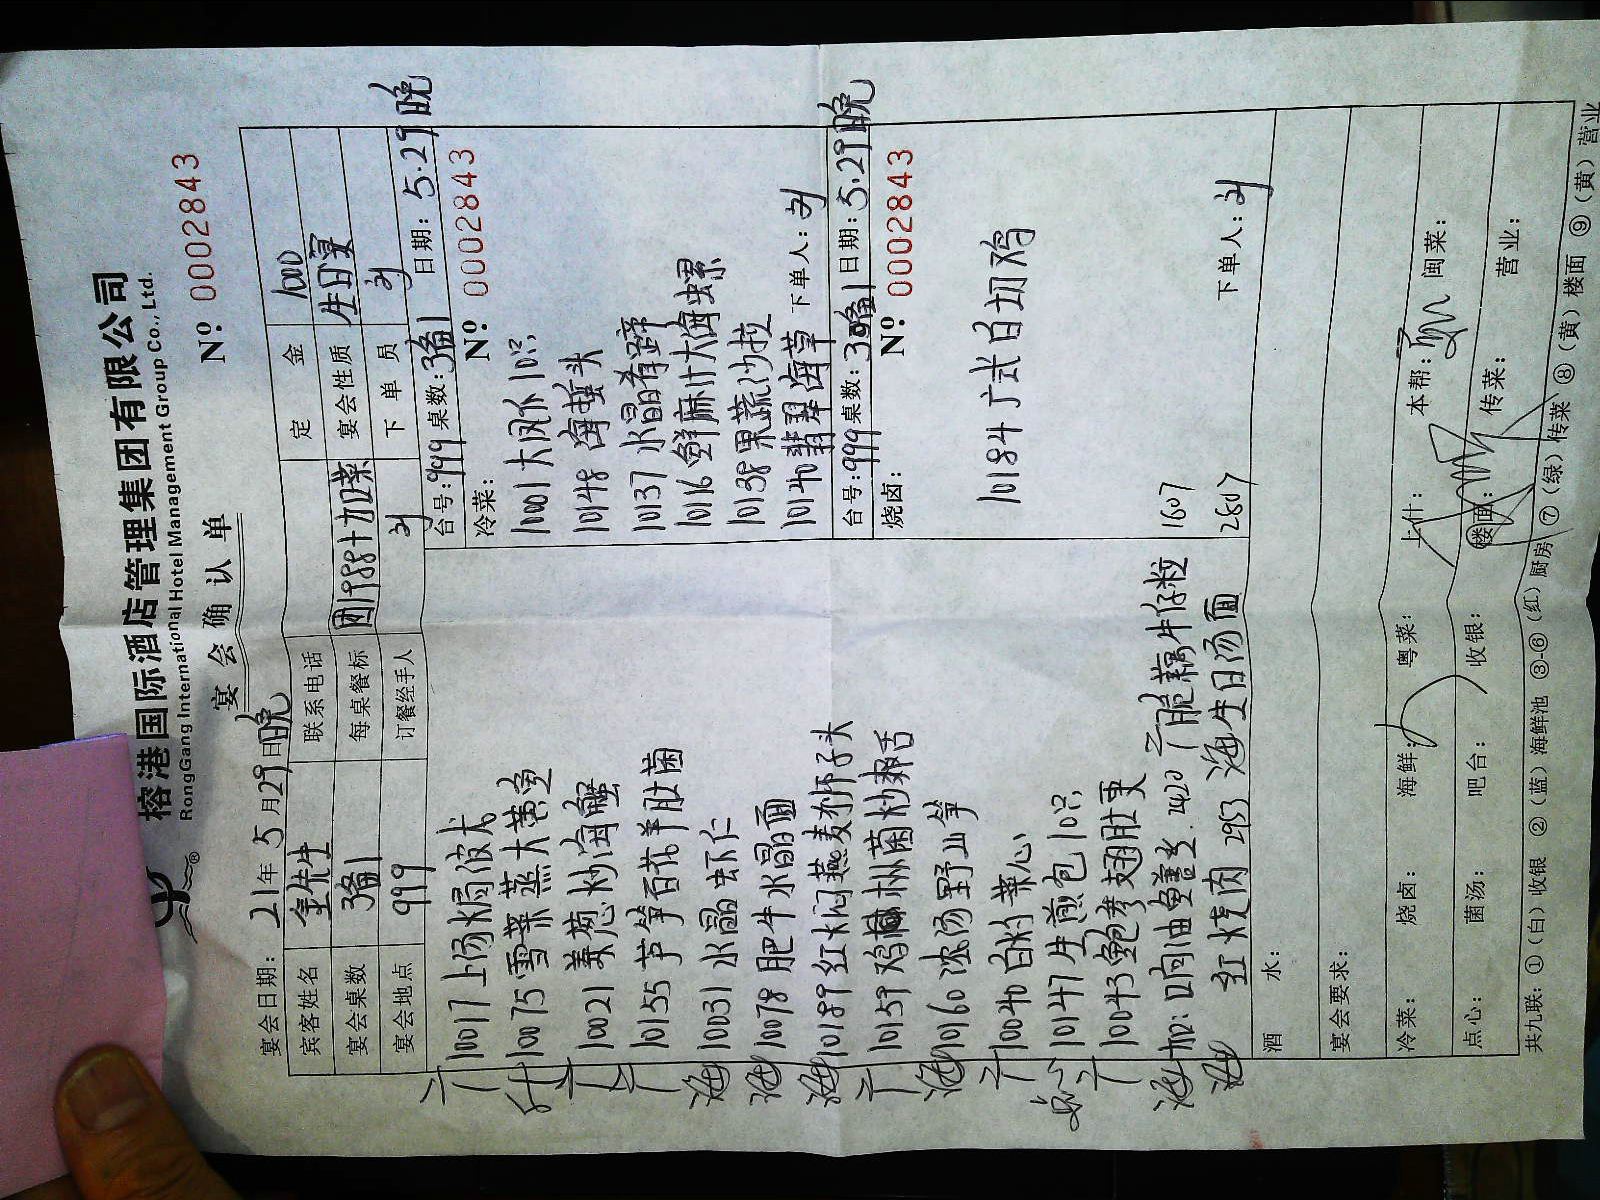 榕港国际酒店管理集团有限公司
RongGang International Hotel Management Group Co., Ltd.
宴会确认单
№ 0002843
宴会日期: 21年5月29日晚
宾客姓名 金先生 联系电话 定金 1000
宴会桌数 3备1 每桌餐标 团1988+加菜 宴会性质 生日宴
宴会地点 999 订餐经手人 下单员
10017 上汤焗波龙
10075 雪菜蒸大黄鱼
10021 姜葱炒海蟹
10155 芦笋百花羊肚菌
10031 水晶虾仁
10078 肥牛水晶面
10189 红焖燕麦狮子头
10159 鸡枞菌炒鹅舌
10160 浓汤野山笋
10040 白灼菜心
10147 生煎包10只
10043 鲍参翅肚羹
加: 响油鳝丝 2420 脆藕牛仔粒 1607
红烧肉 2953 生日汤面 2807
台号: 999 桌数: 3备1 日期: 5.29晚
冷菜:
№ 0002843
10001 大闸 10只
10148 海蜇头
10137 水晶肴蹄
10116 鲜麻汁大海螺
10138 果蔬沙拉
10140 翡翠海草
下单人:
台号: 999 桌数: 3备1 日期: 5.29晚
烧卤:
№ 0002843
10184 广式白切鸡
下单人:
酒水:
宴会要求:
冷菜: 烧卤: 海鲜: 粤菜: 上什: 本帮: 闽菜:
点心: 菌汤: 吧台: 收银: 楼面: 传菜: 营业:
共九联: ①(白)收银 ②(蓝)海鲜池 ③-⑥(红)厨房 ⑦(绿)传菜 ⑧(黄)楼面 ⑨(黄)营业